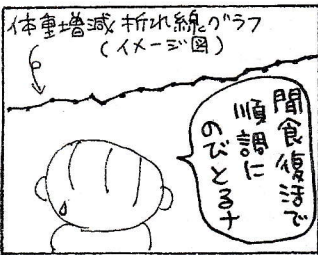 体重増減折れ線グラフ
(イメージ図)
間食復活で
順調に
のびとるナ